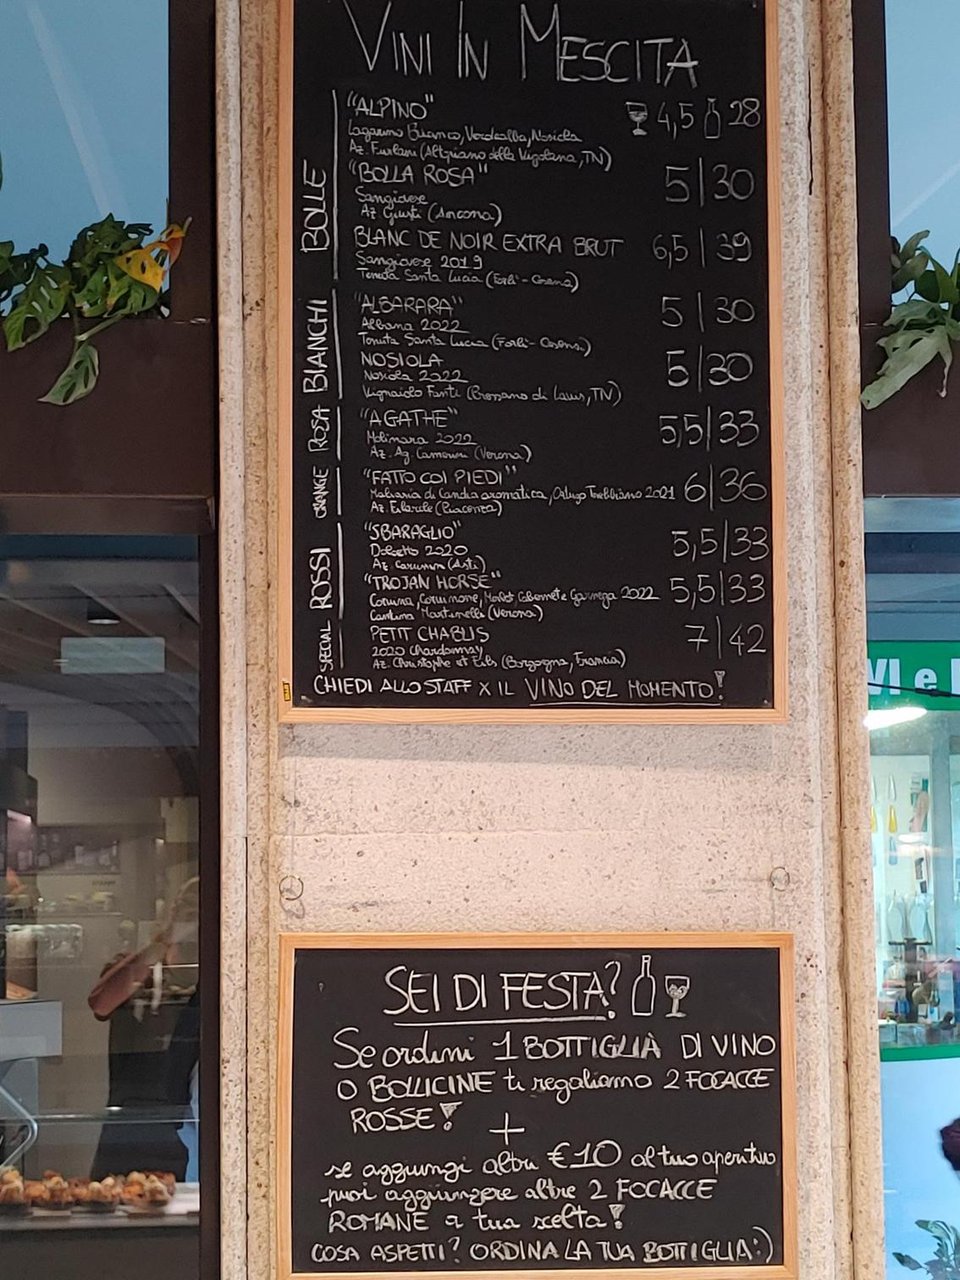 VINI IN MESCITA
BOLLE
"ALPINO" 4,5 28
Lagarino Bianco, Verdealba, Nosiola
Az. Furlani (Altopiano della Vigolana, TN)
"BOLLA ROSA" 5|30
Sangiovese
Az Giusti (Ancona)
BLANC DE NOIR EXTRA BRUT 6,5|39
Sangiovese 2019
Tenuta Santa Lucia (Forlì-Cesena)
BIANCHI
"ALBARARA" 5|30
Albana 2022
Tenuta Santa Lucia (Forlì-Cesena)
NOSIOLA 5|30
Nosiola 2022
Vignaiolo Fanti (Pressano di Lavis, TN)
ROSA
"AGATHE" 5,5|33
Molinara 2022
Az. Ag. (Verona)
ORANGE
"FATTO COI PIEDI" 6|36
Malvasia di Candia aromatica, Trebbiano 2021
Az. (Piacenza)
ROSSI
"SBARAGLIO" 5,5|33
Dolcetto 2020
Az. (Asti)
"TROJAN HORSE" 5,5|33
Corvina, Corvinone, Merlot, Cabernet e 2022
Cantina Martinelli (Verona)
SPECIAL
PETIT CHABLIS 7|42
2020 Chardonnay
Az. Christophe et Fils (Borgogna, Francia)
CHIEDI ALLO STAFF X IL VINO DEL MOMENTO!
VI e
SEI DI FESTA?
Se ordini 1 BOTTIGLIA DI VINO
O BOLLICINE ti regaliamo 2 FOCACCE
ROSSE!
+
se aggiungi altri €10 al tuo aperitivo
puoi aggiungere altre 2 FOCACCE
ROMANE a tua scelta!
COSA ASPETTI? ORDINA LA TUA BOTTIGLIA:)